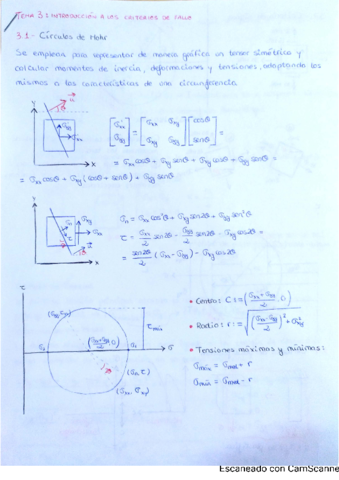 TEMA 3: INTRODUCCIÓN A LOS CRITERIOS DE FALLA
3.1- Círculos de Mohr
Se emplea para representar de manera gráfica un tensor simétrico y
calcular momentos de inercia, deformaciones y tensiones, adaptando los
mismos a las características de una circunferencia.
= σxx cosθ + σxy senθ + σxy cosθ + σyy senθ =
= σxx cosθ + σxy (cosθ + senθ) + σyy senθ
σn = σxx cos²θ + σxy sen2θ + σyy sen²θ
τ = σxx/2 sen2θ - σyy/2 sen2θ - σxy cos2θ =
= sen2θ/2 (σxx - σyy) - σxy cos2θ
• Centro: C = ((σxx + σyy)/2, 0)
• Radio: r = √(((σxx - σyy)/2)² + σxy²)
• Tensiones máximas y mínimas:
σmáx = σmed + r
σmín = σmed - r
τmáx
(σn, τ)
(σxx, σxy)
Escaneado con CamScanner